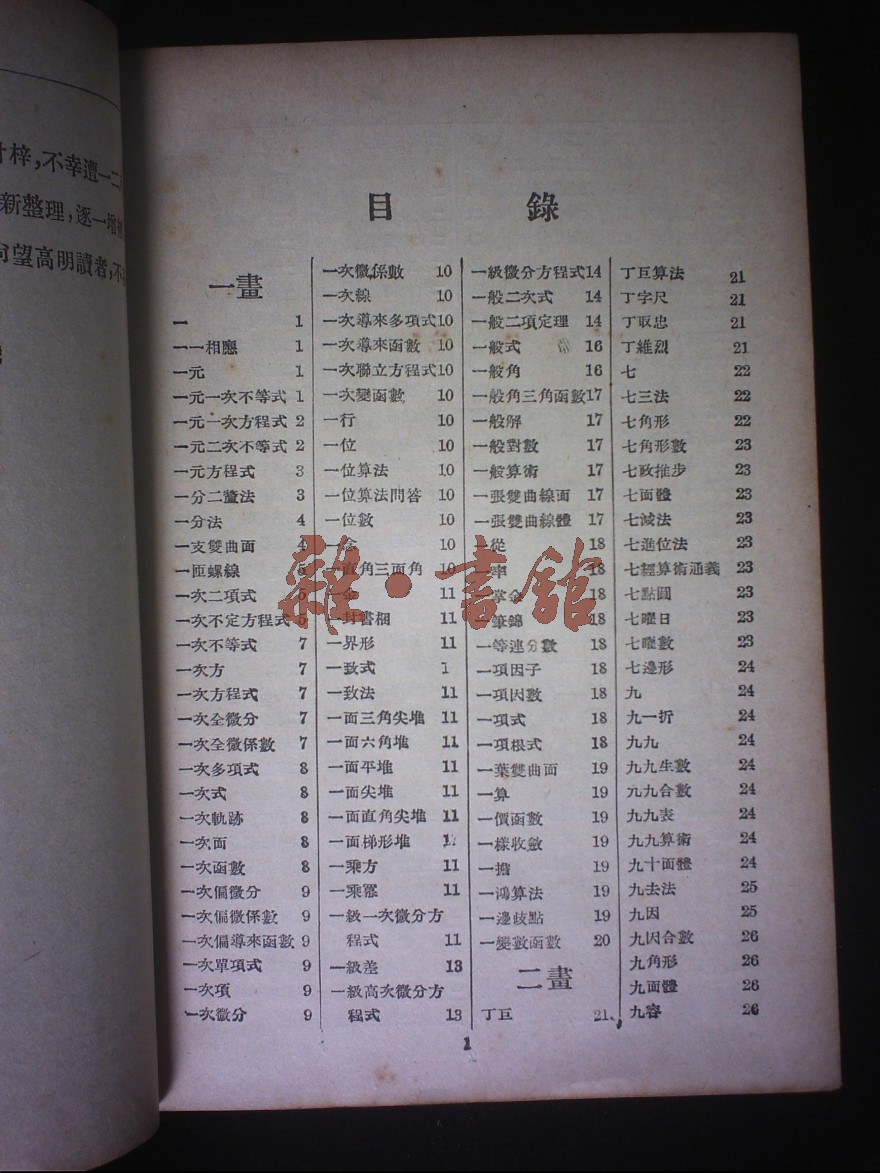 梓,不幸遭一二
新整理,逐一增
望高明讀者,不
目錄
一畫
一 1
一一相應 1
一元 1
一元一次不等式 1
一元一次方程式 2
一元二次不等式 2
一元方程式 3
一分二釐法 3
一分法 4
一支雙曲面 4
一匝螺線 5
一次二項式 5
一次不定方程式 5
一次不等式 7
一次方 7
一次方程式 7
一次全微分 7
一次全微係數 7
一次多項式 8
一次式 8
一次軌跡 8
一次面 8
一次函數 8
一次偏微分 9
一次偏微係數 9
一次偏導來函數 9
一次單項式 9
一次項 9
一次微分 9
一次微係數 10
一次線 10
一次導來多項式 10
一次導來函數 10
一次聯立方程式 10
一次變函數 10
一行 10
一位 10
一位算法 10
一位算法問答 10
一位數 10
一 10
一直角三面角 10
一 11
一封書棝 11
一界形 11
一致式 1
一致法 11
一面三角尖堆 11
一面六角堆 11
一面平堆 11
一面尖堆 11
一面直角尖堆 11
一面梯形堆 1
一乘方 11
一乘冪 11
一級一次微分方
程式 11
一級差 13
一級高次微分方
程式 13
一級微分方程式 14
一般二次式 14
一般二項定理 14
一般式 16
一般角 16
一般角三角函數 17
一般解 17
一般對數 17
一般算術 17
一張雙曲線面 17
一張雙曲線體 17
一從 18
一率 18
一掌金 18
一筆錦 18
一等連分數 18
一項因子 18
一項因數 18
一項式 18
一項根式 18
一葉雙曲面 19
一算 19
一價函數 19
一樣收斂 19
一 19
一鴻算法 19
一邊歧點 19
一變數函數 20
二畫
丁巨 21
丁巨算法 21
丁字尺 21
丁取忠 21
丁維烈 21
七 22
七三法 22
七角形 22
七角形數 23
七政推步 23
七面體 23
七減法 23
七進位法 23
七經算術通義 23
七點圓 23
七曜日 23
七曜數 23
七邊形 24
九 24
九一折 24
九九 24
九九生數 24
九九合數 24
九九表 24
九九算術 24
九十面體 24
九去法 25
九因 25
九因合數 26
九角形 26
九面體 26
九容 26
1
雜·書館